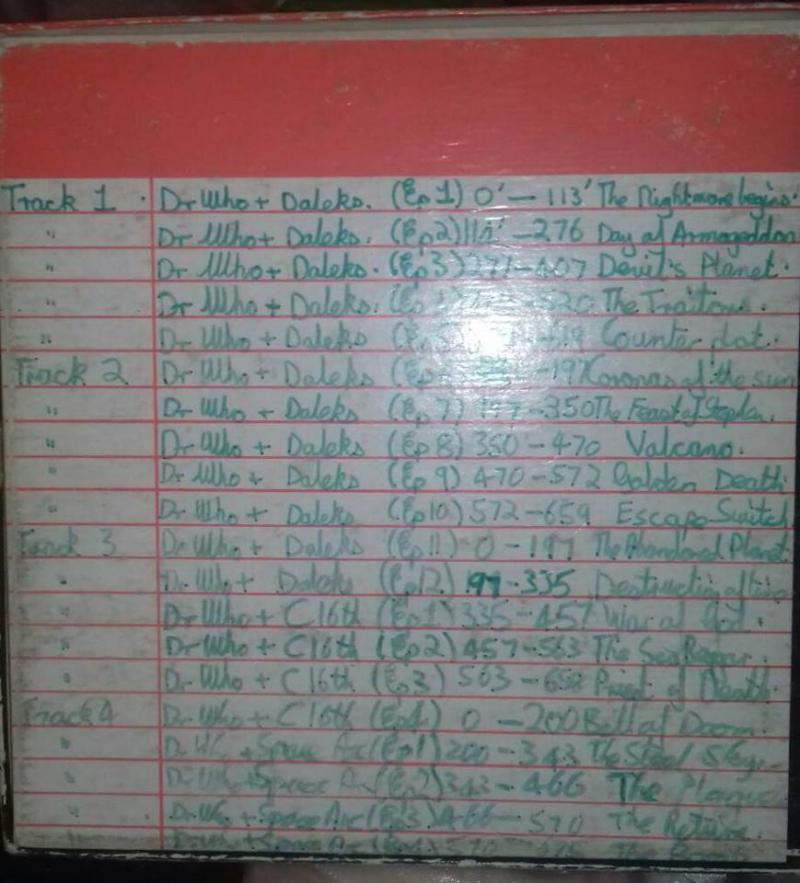 Track 1 Dr Who + Daleks. (Ep 1) 0' — 113' The Nightmare begins.
" Dr Who + Daleks. (Ep 2) 114' — 276 Day of Armageddon
" Dr Who + Daleks. (Ep 3) 277 — 407 Devil's Planet.
" Dr Who + Daleks. (Ep 520 The Traitors.
" Dr Who + Daleks (Ep Counter plot.
Track 2 Dr Who + Daleks (Ep — 197 Coronas of the sun
" Dr Who + Daleks (Ep 7) 197 — 350 The Feast of Steplen.
" Dr Who + Daleks (Ep 8) 350 — 470 Valcano.
" Dr Who + Daleks (Ep 9) 470 — 572 Golden Death
" Dr Who + Daleks (Ep 10) 572 — 659 Escape Switch
Track 3 Dr Who + Daleks (Ep 11) 0 — 197 The Abandoned Planet
" Dr Who + Daleks (Ep 12) 97 — 335 Destruction of time
" Dr Who + C16th (Ep 1) 335 — 457 War of God.
" Dr Who + C16th (Ep 2) 457 — 563 The Sea Beggar.
" Dr Who + C16th (Ep 3) 563 — 658 Priest of Death.
Track 4 Dr Who + C16th (Ep 4) 0 — 200 Bell of Doom.
" Dr Who + Space Arc (Ep 1) 200 — 343 The Steel Sky
" Dr Who + Space Arc (Ep 2) 343 — 466 The Plague
" Dr Who + Space Arc (Ep 3) 466 — 570 The Return.
Space Arc (Ep 4) 570